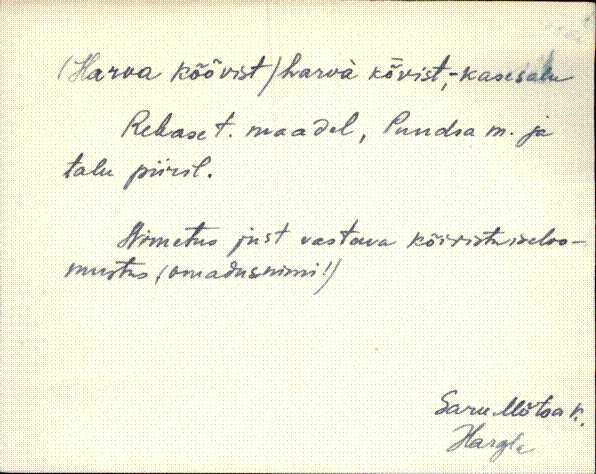 (Harva kõõvist) harvà kȭvist, - kasesalu
Rebase t. maadel, Puudsa m. ja
talu piiril.
Nimetus just vastava kõivistu iseloo-
mustus, (omadusnimi!)
Saru Mõtsa k.
Hargla